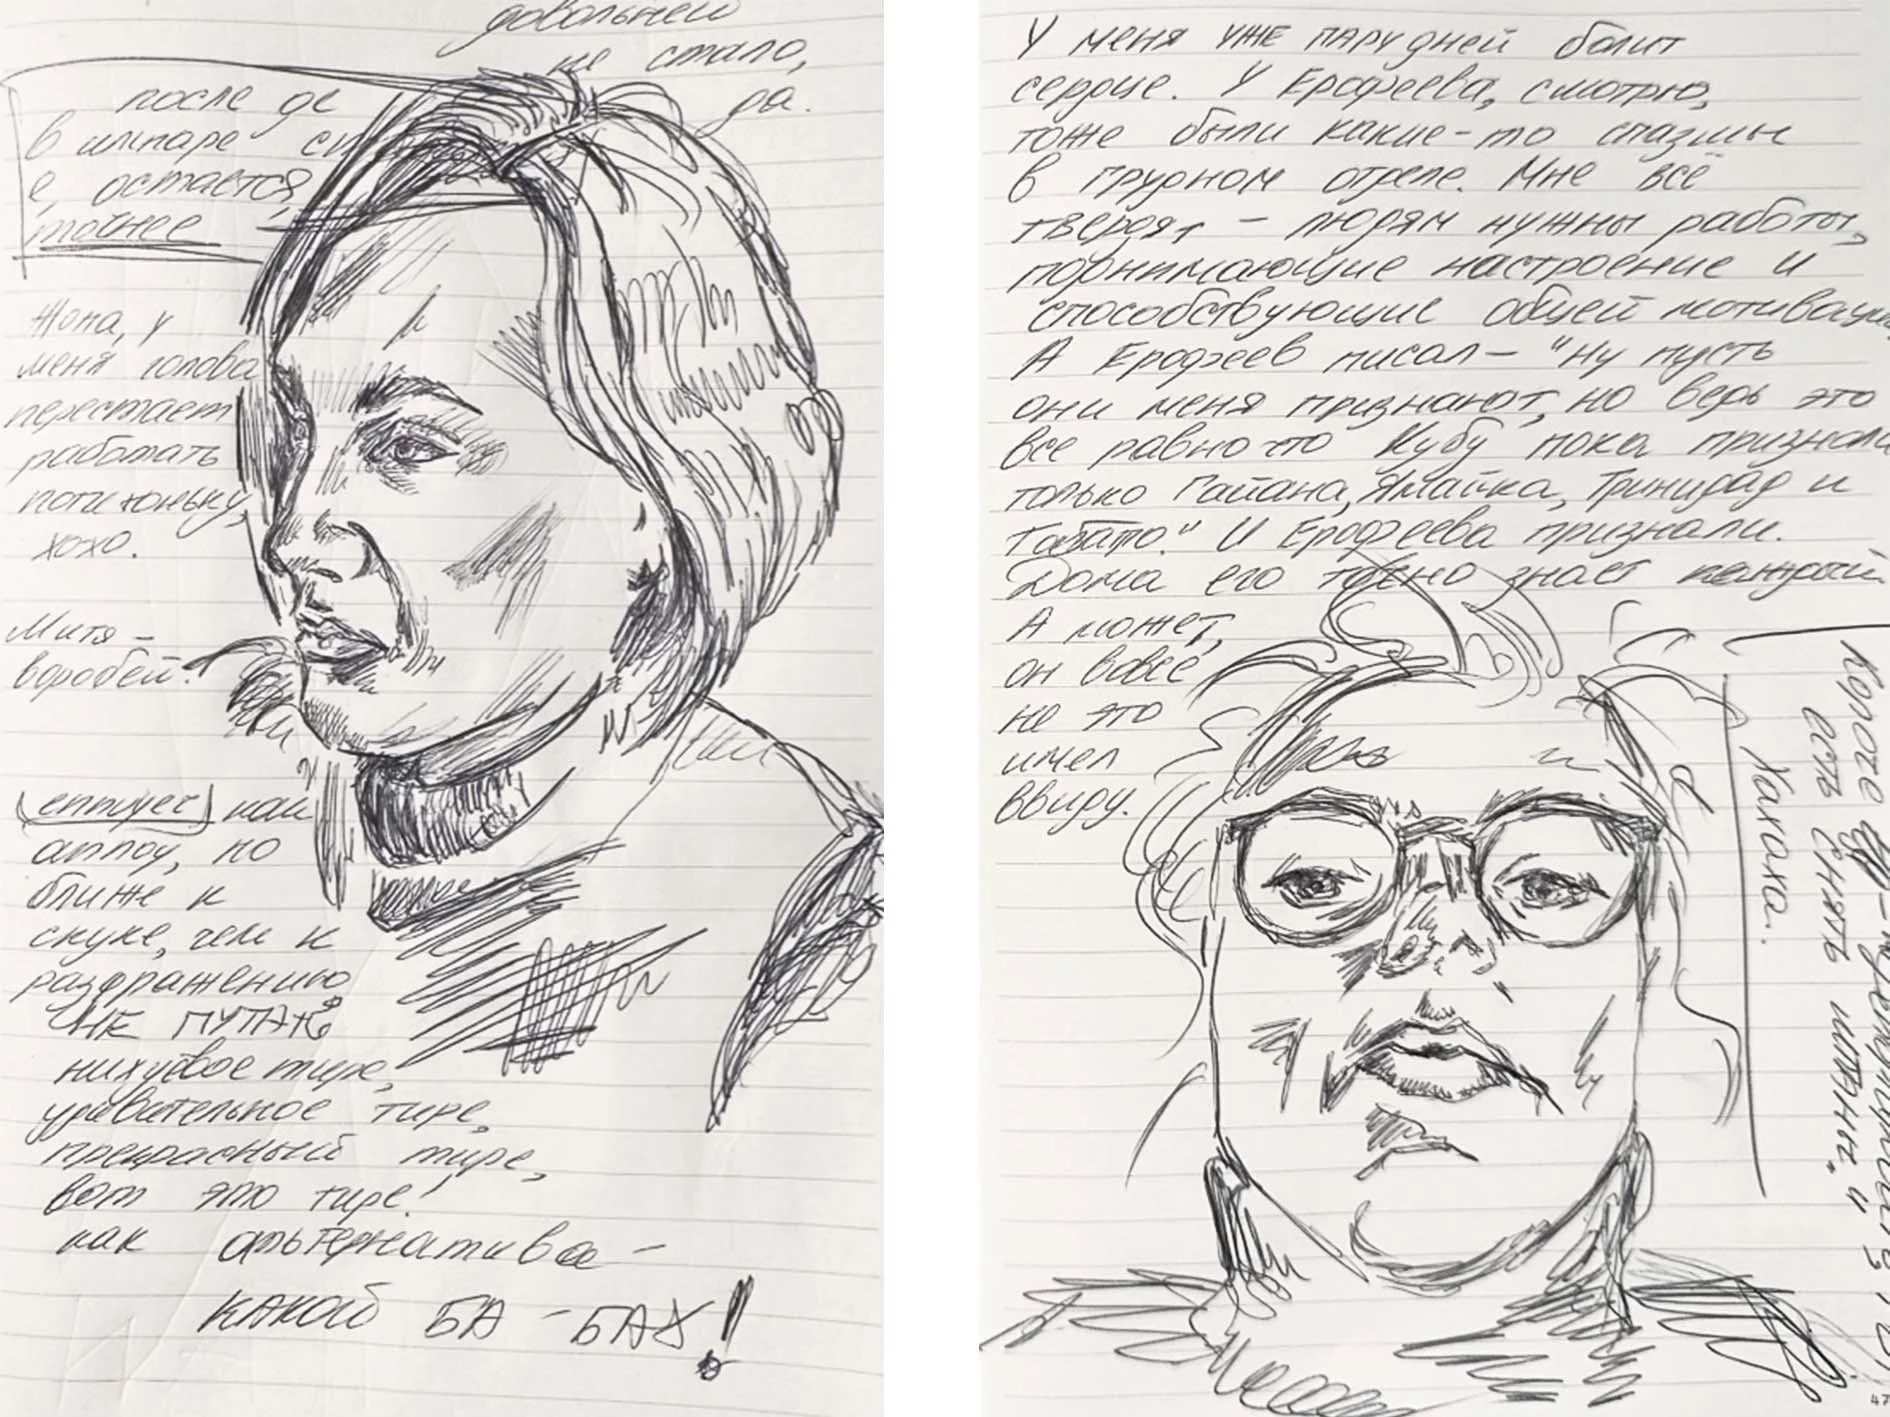 довольней
не стало,
да.
после де
в шпаре
е, остаётся,
точнее
Жопа, у
меня голова
перестаёт
работать
потихоньку,
хохо.
Митя –
воробей.
как
но
ближе к
скуке, чем к
раздражению
НЕ ПУТАЖ
нихуёвое тире,
удивительное тире,
прекрасный тире,
вот это тире!
как альтернатива –
КАКОЙ БА - БАХ!
У меня УЖЕ ПАРУ дней болит
сердце. У Ерофеева, смотрю,
тоже были какие-то спазмы
в грудном отделе. Мне всё
твердят, – людям нужны работы,
поднимающие настроение и
способствующие общей мотивации
А Ерофеев писал – "Ну пусть
они меня признают, но ведь это
всё равно что Кубу пока признали
только Гайана, Ямайка, Тринидад и
Табаго." И Ерофеева признали.
Дома его точно знает каждый
А может,
он вовсе
не это
имел
ввиду.
Короче
есть снять штанны". и
Хахаха.
47